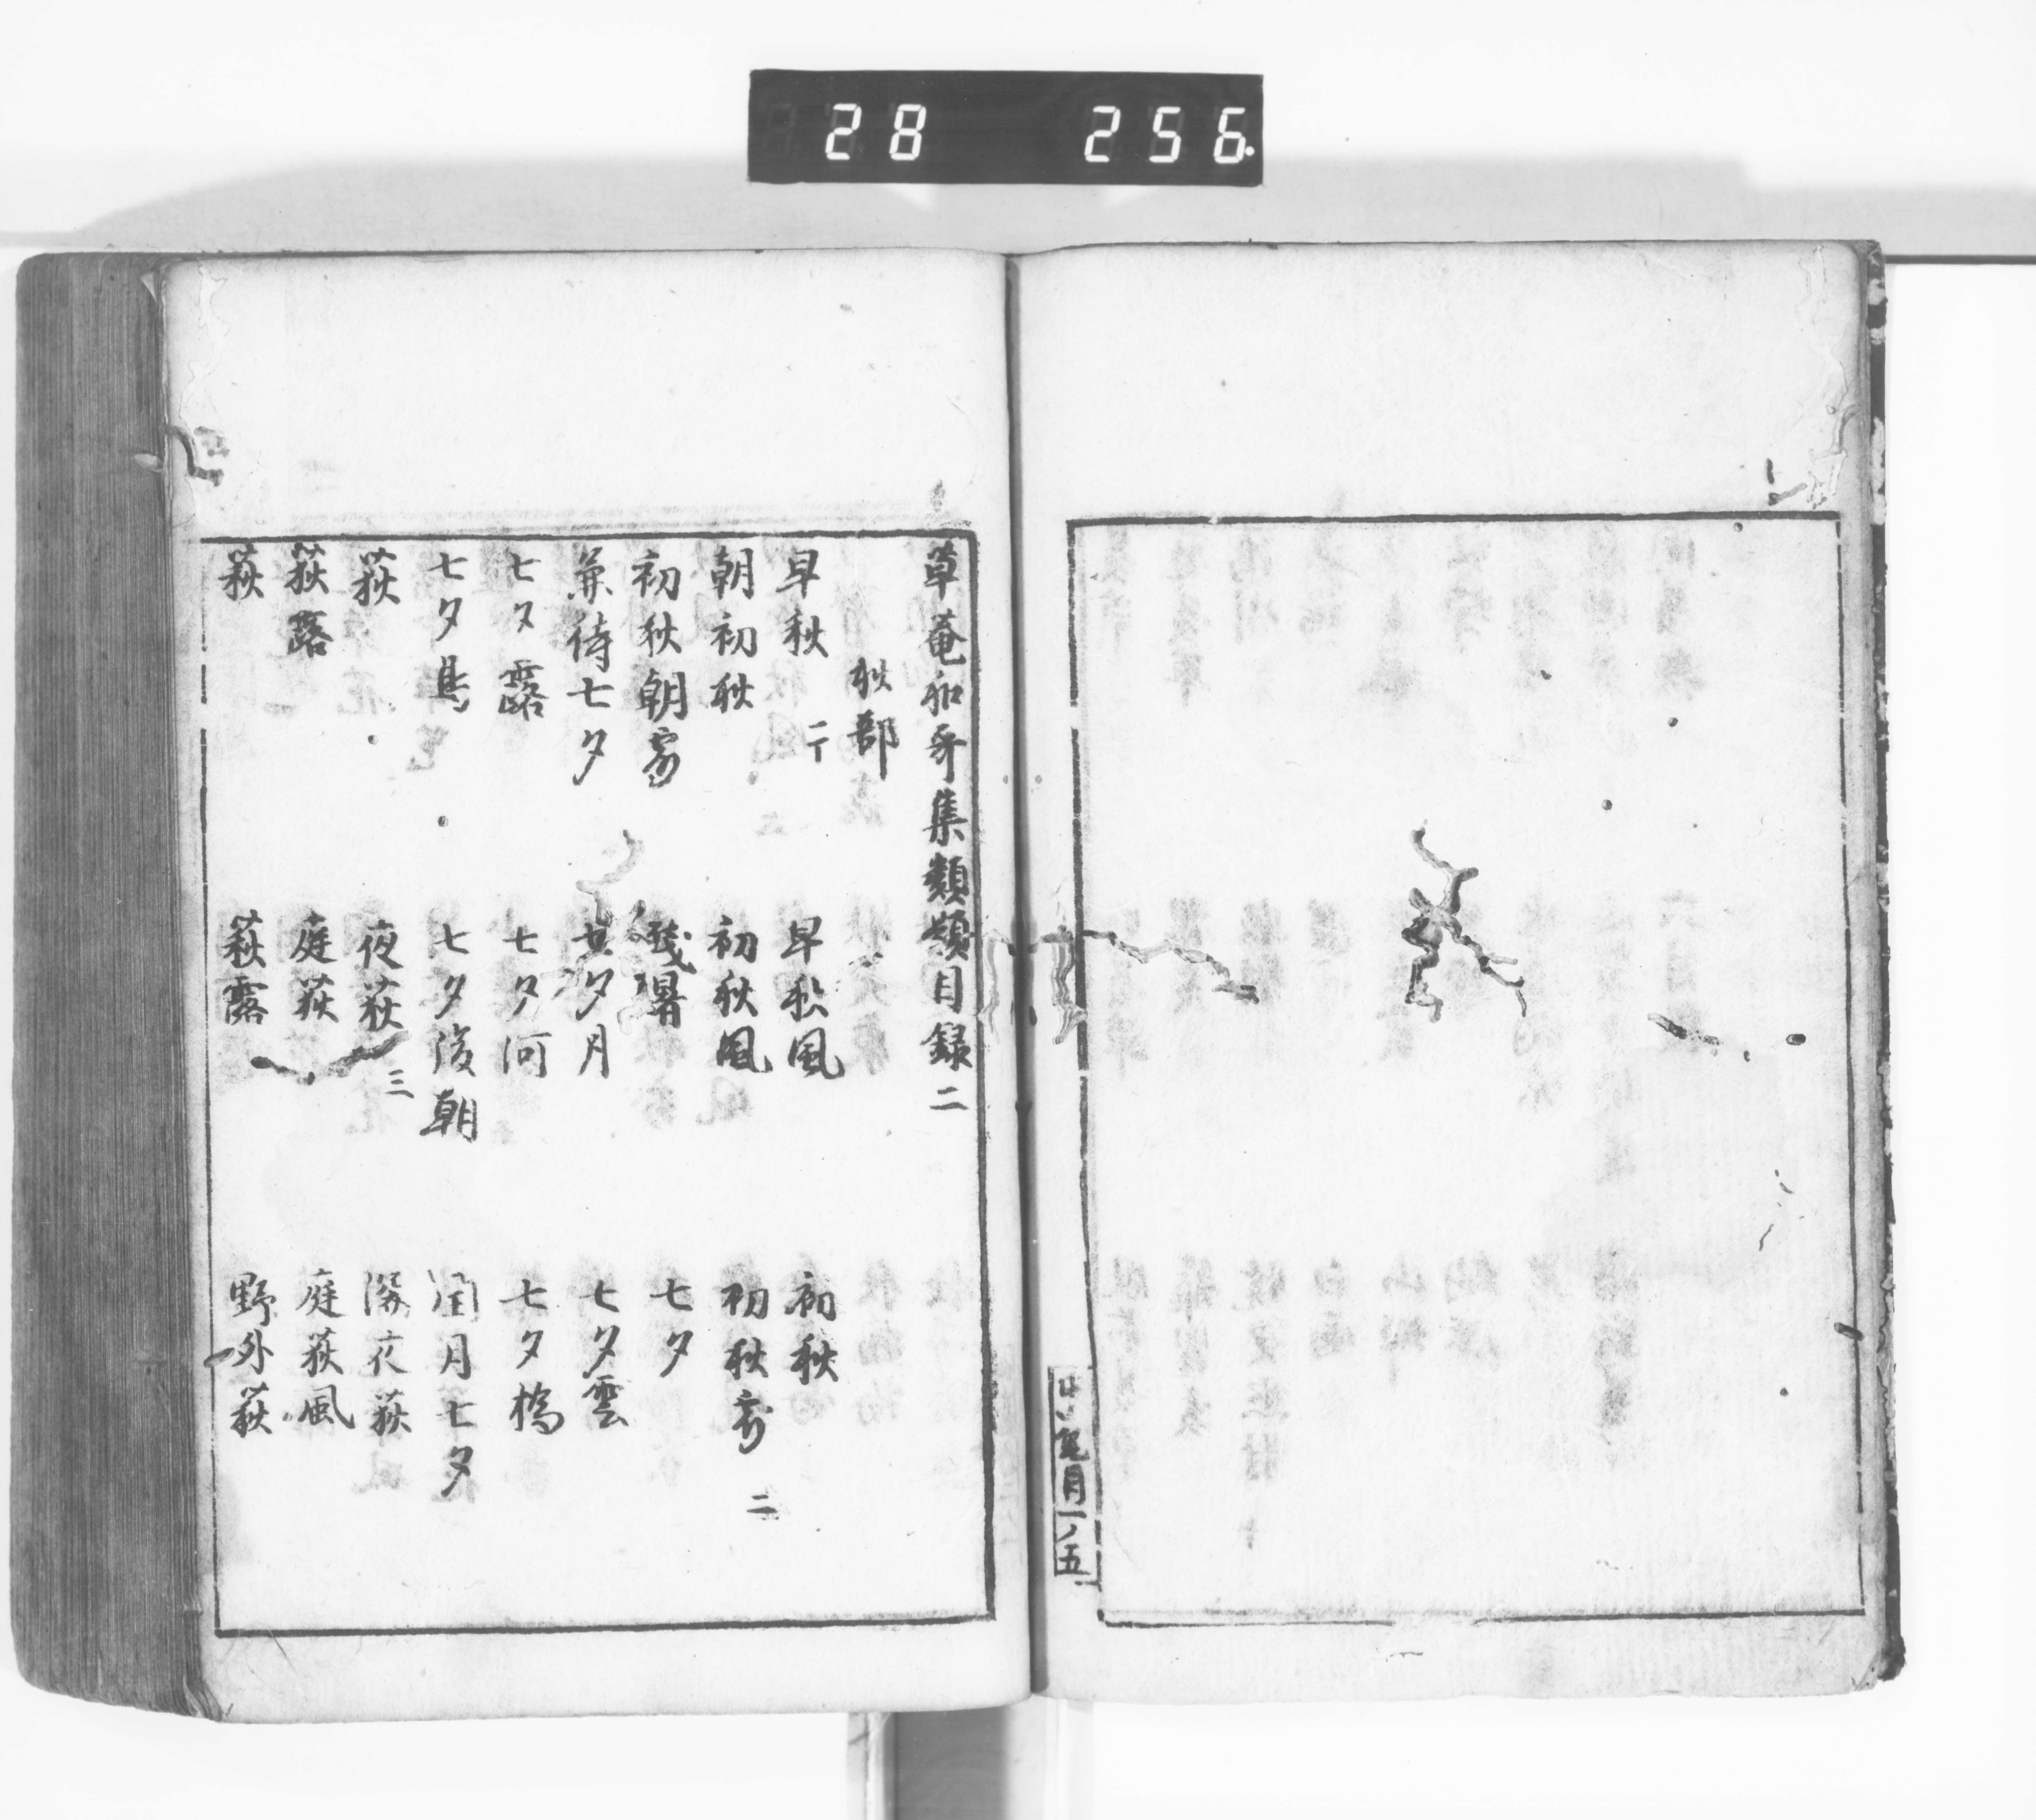 28 256.
草菴和哥集類題目録二
秋部
早秋 二丁 早秋風 初秋
朝初秋 初秋風 初秋露 二
初秋朝露 残暑 七夕
兼待七夕 七夕月 七夕雲
七夕露 七夕河 七夕橋
七夕鳥 七夕後朝 閏月七夕
荻 夜荻 三 深夜荻
荻露 庭荻 庭荻風
萩 萩露 野外萩
目一ノ五